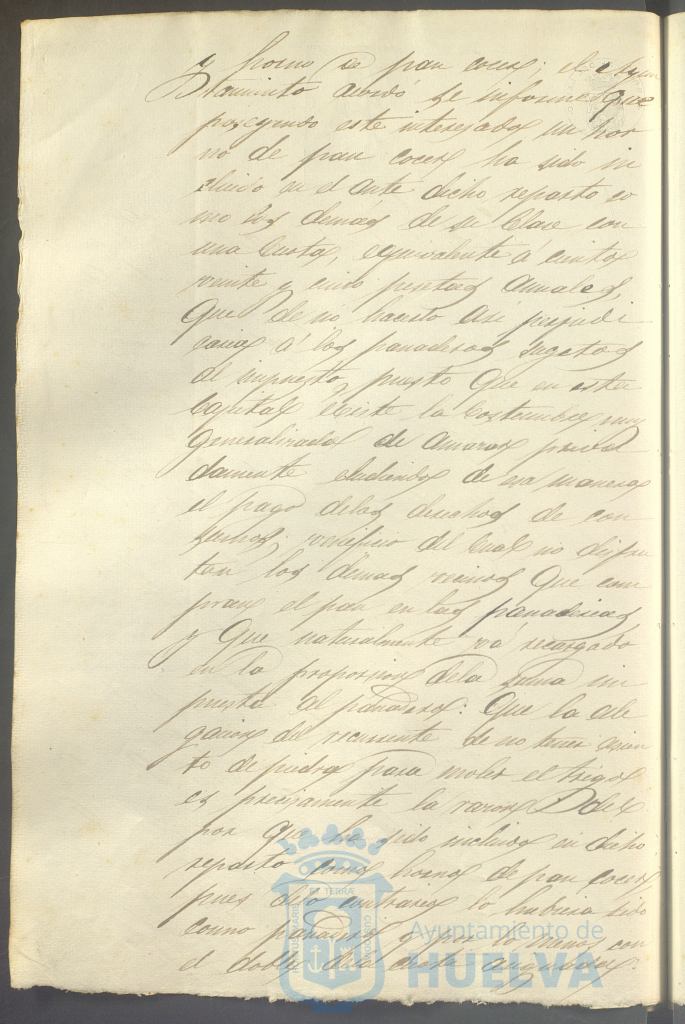 y horno de pan cocer; el Ayun
tamiento acordó se informe que
poseyendo este interesado un hor
no de pan cocer ha sido in
cluido en el ante dicho reparto co
mo los demas de su clase con
una cuota, equivalente á ciento
veinte y cinco pesetas anuales,
que de no hacerlo asi perjudi
caria á los panaderos sugetos
al impuesto, puesto que en esta
Capital existe la costumbre muy
generalizada de amasar priva
damente eludiendo de esa manera
el pago delos derechos de con
sumos; veneficio del cual no disfru
tan los demas vecinos que com
pran el pan en las panaderias
y que naturalmente vá recargado
en la proporcion dela suma im
puesta al panadero: Que la ale
gacion del recurrente de no tener asien
to de piedra para moler el trigo
es precisamente la razon del
por que ha sido incluido en dicho
reparto como horno de pan cocer,
pues delo contrario lo hubiera sido
como panadero y por lo menos con
el doble dela cuota asignada.
ET TERRÆ
Ayuntamiento de
HUELVA